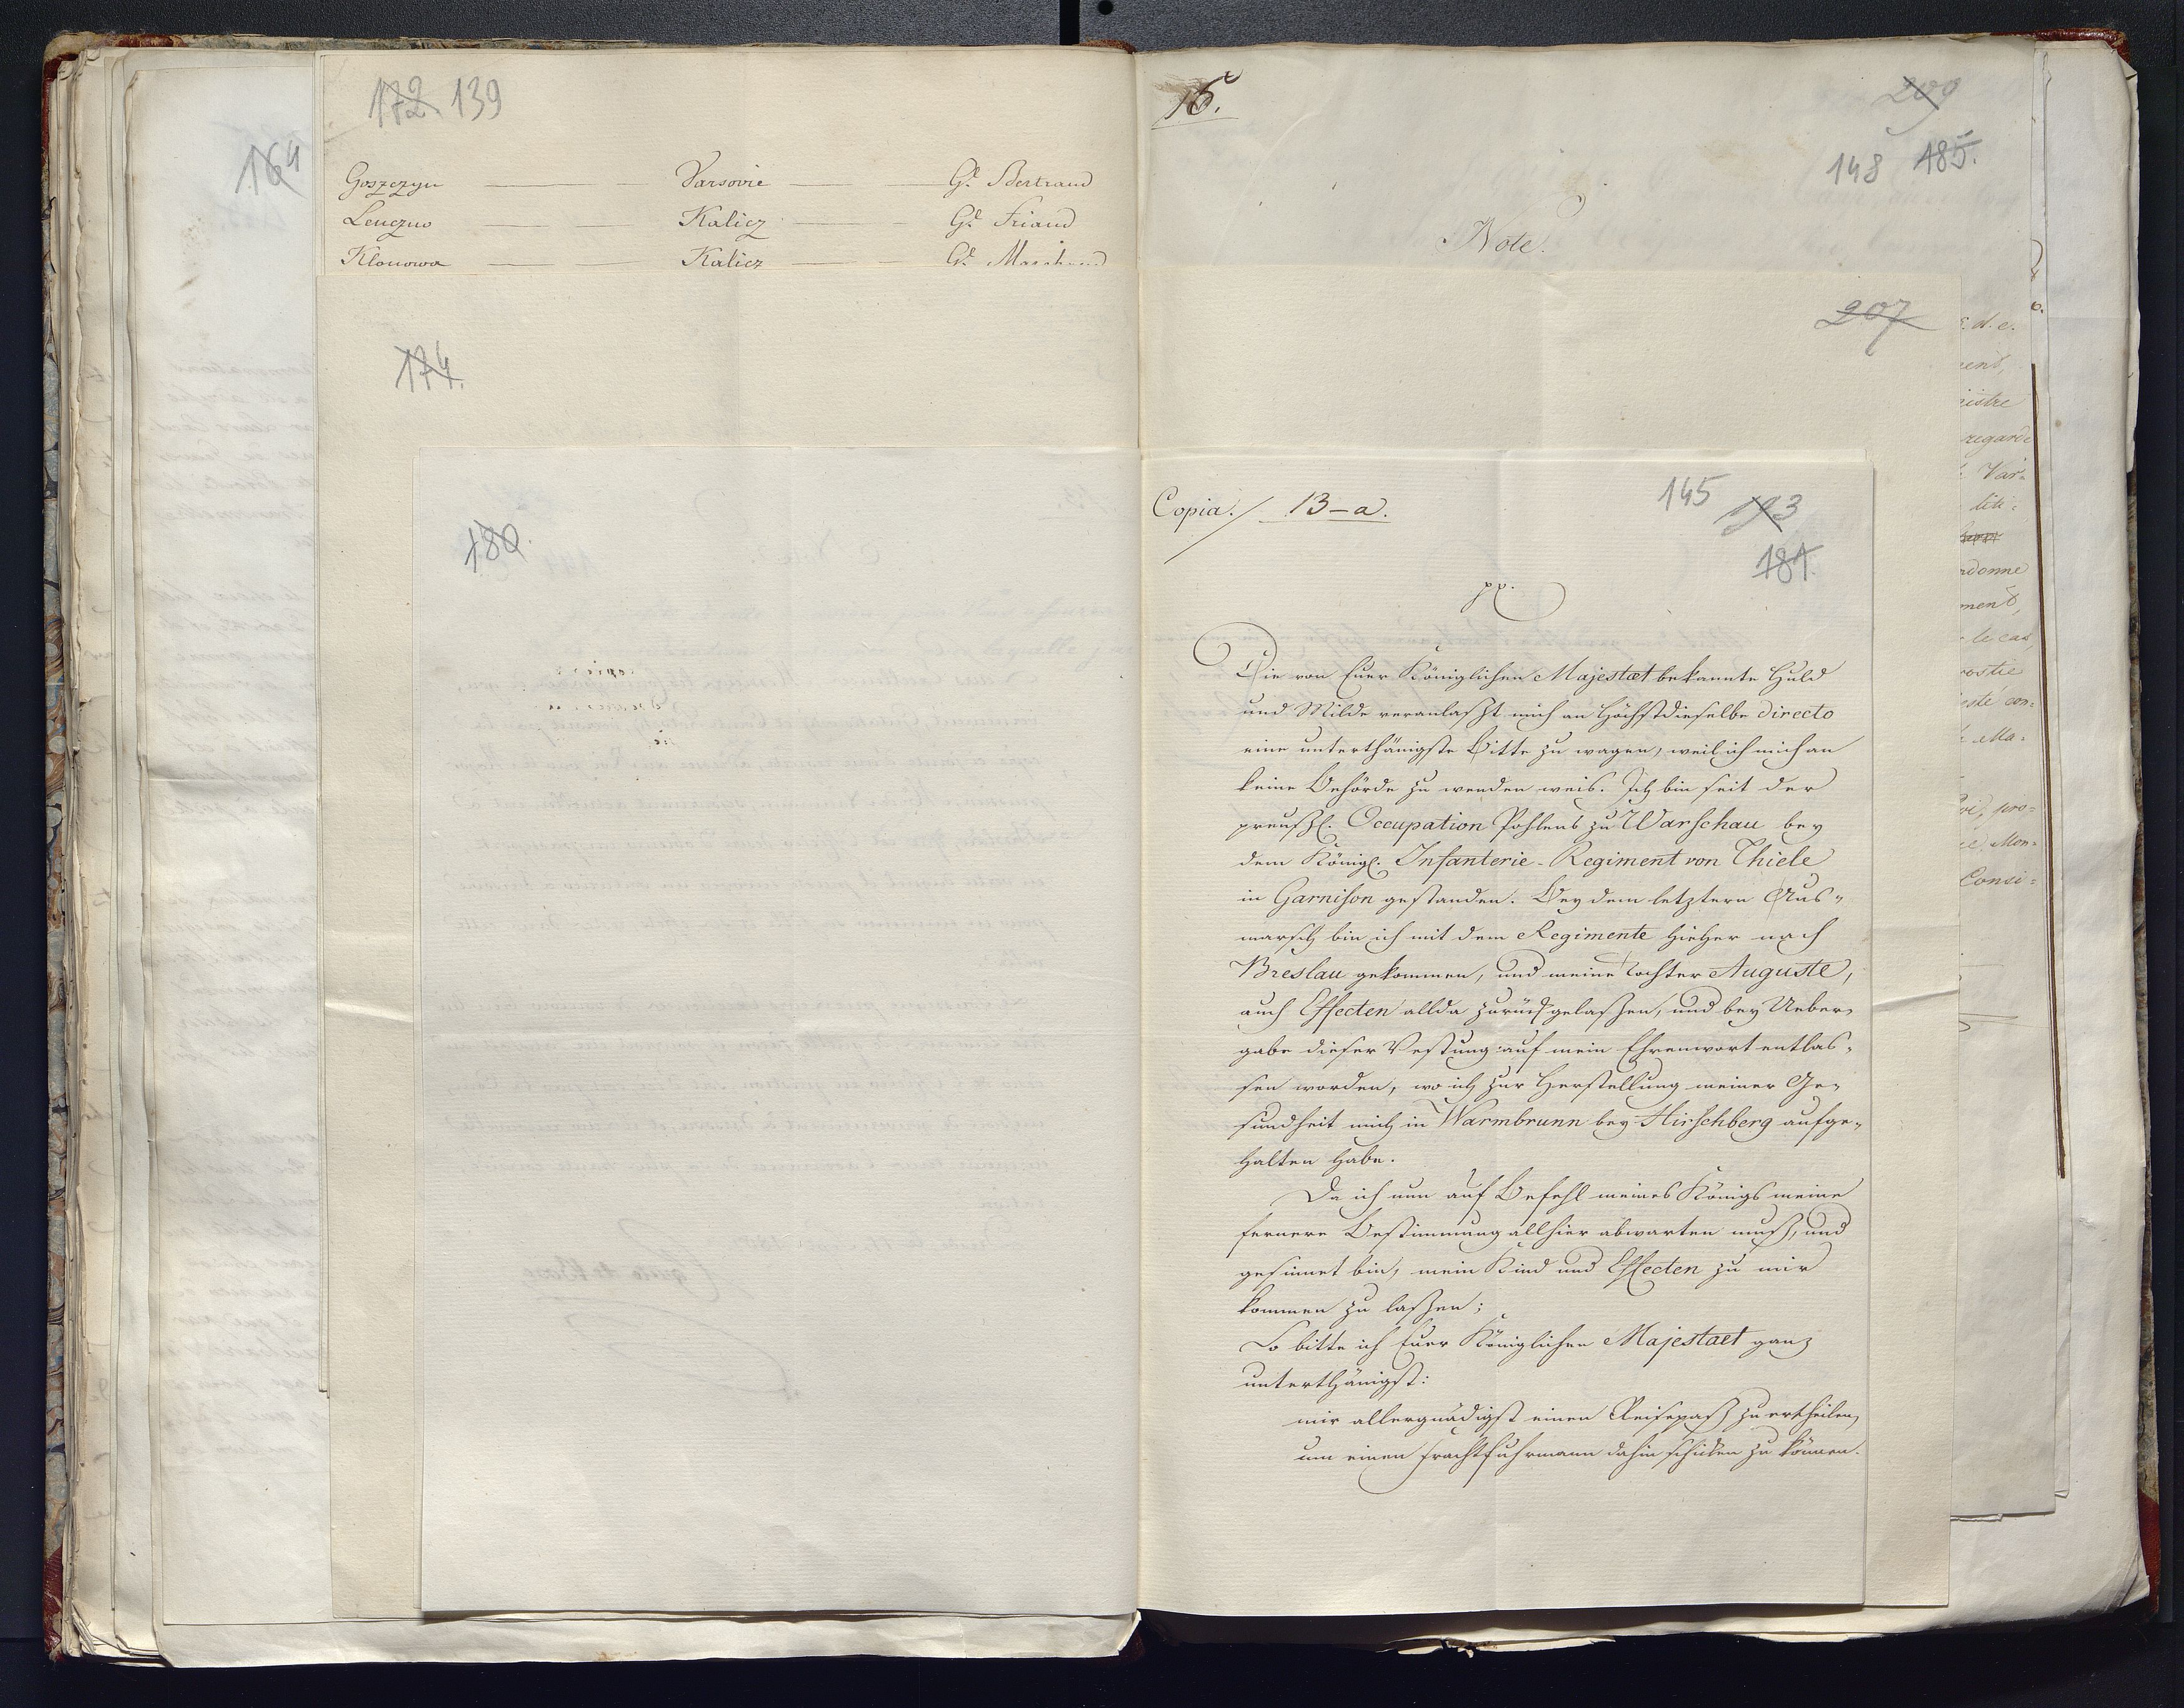 164
172. 139
Goszczyn — Varsovie — Gl. Bertrand
Lenczno — Kalicz — Gl. Friand
Klonowa — Kalicz — Gl. Marchand
174.
180.
16.
209
148 185.
Note.
207
Copia. / 13-a.
145 193
181.
pp.
Die von Euer Königlichen Majestaet bekannte Huld
und Milde veranlaßt mich an Höchstdieselbe directo
eine unterthänigste Bitte zu wagen, weil ich mich an
keine Behörde zu wenden weis. Ich bin seit der
preußl. Occupation Pohlens zu Warschau bey
dem Königl. Infanterie-Regiment von Thiele
in Garnison gestanden. Bey dem letztern Aus-
marsch bin ich mit dem Regimente hieher nach
Breslau gekommen, und meine Tochter Auguste,
auch Effecten allda zurückgelaßen, und bey Ueber-
gabe dieser Vestung auf mein Ehrenwort entlas-
sen worden, wo ich zur Herstellung meiner Ge-
sundheit mich in Warmbrunn bey Hirschberg aufge-
halten habe.
Da ich nun auf Befehl meines Königs meine
fernere Bestimmung allhier abwarten muß, und
gesinnet bin, mein Kind und Effecten zu mir
kommen zu laßen;
So bitte ich Euer Königlichen Majestaet ganz
unterthänigst:
mir allergnädigst einen Reisepaß zu ertheilen,
um einen Frachtfuhrmann dahin schicken zu können.
c. d. e.
ment,
nistre
regarde
Var-
liti-
rdonne
ment,
le cas
esté con-
Ma-
pro-
Mon-
Consi-